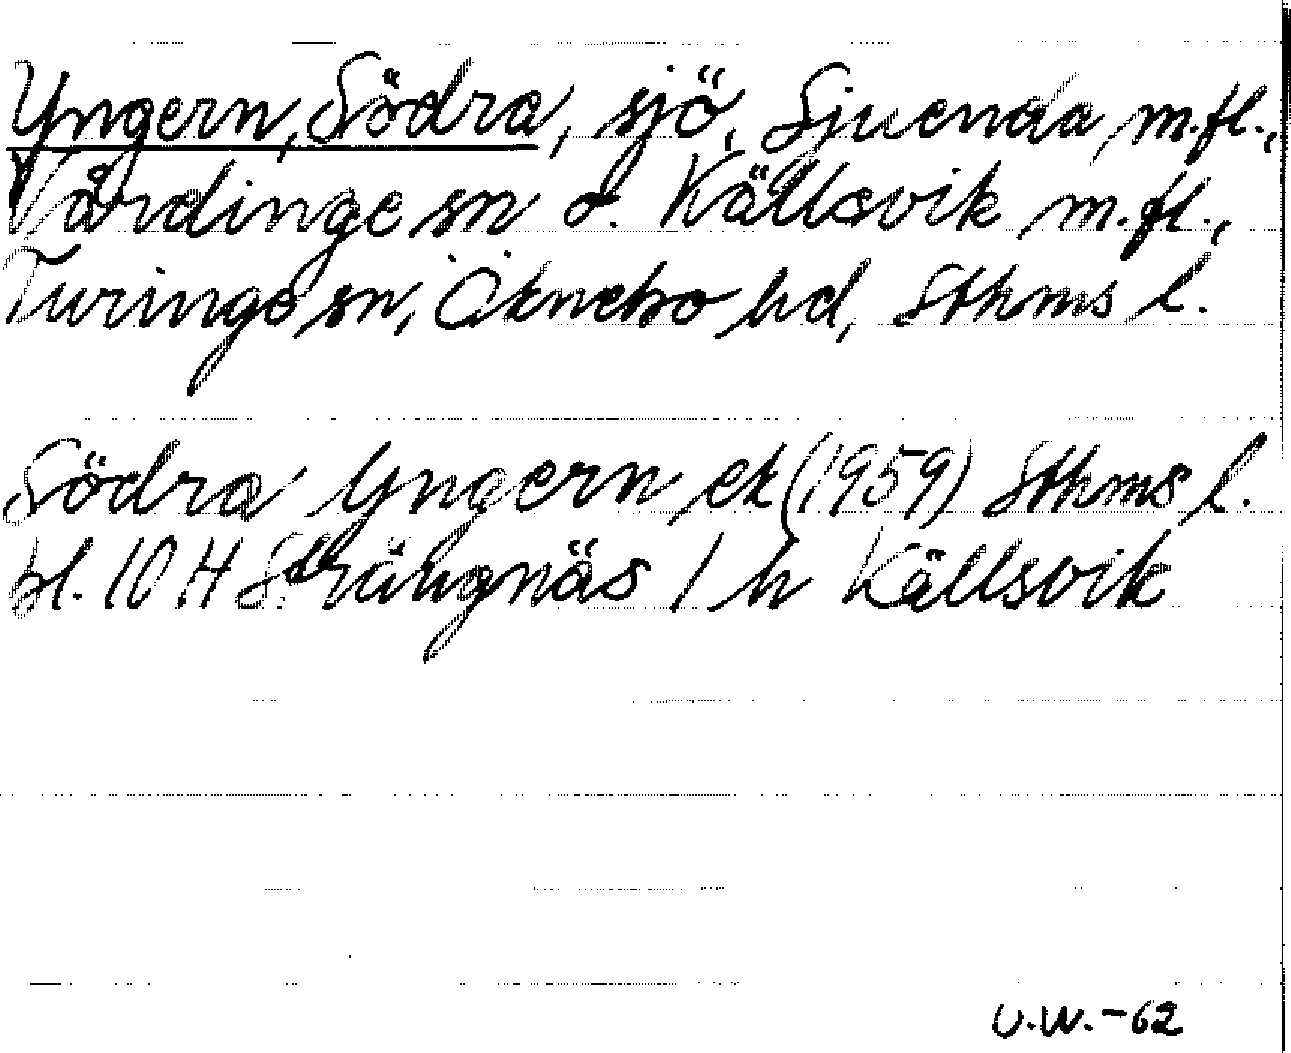 Yngern, Södra, sjö, Sjuenda m.fl.,
Vårdinge sn o. Källsvik m.fl.,
Turinge sn, Öknebo hd, Sthms l.
Södra Yngern ek (1959) Sthms l.
bl. 10 H Strängnäs 1 h Källsvik
U.W.-62